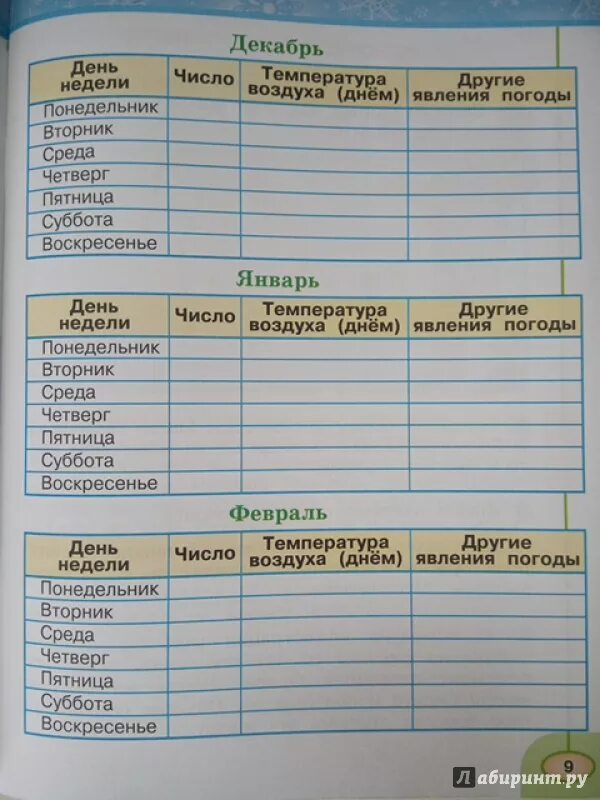 Декабрь
День недели Число Температура воздуха (днём) Другие явления погоды
Понедельник
Вторник
Среда
Четверг
Пятница
Суббота
Воскресенье
Январь
День недели Число Температура воздуха (днём) Другие явления погоды
Понедельник
Вторник
Среда
Четверг
Пятница
Суббота
Воскресенье
Февраль
День недели Число Температура воздуха (днём) Другие явления погоды
Понедельник
Вторник
Среда
Четверг
Пятница
Суббота
Воскресенье
9
Лабиринт.ру